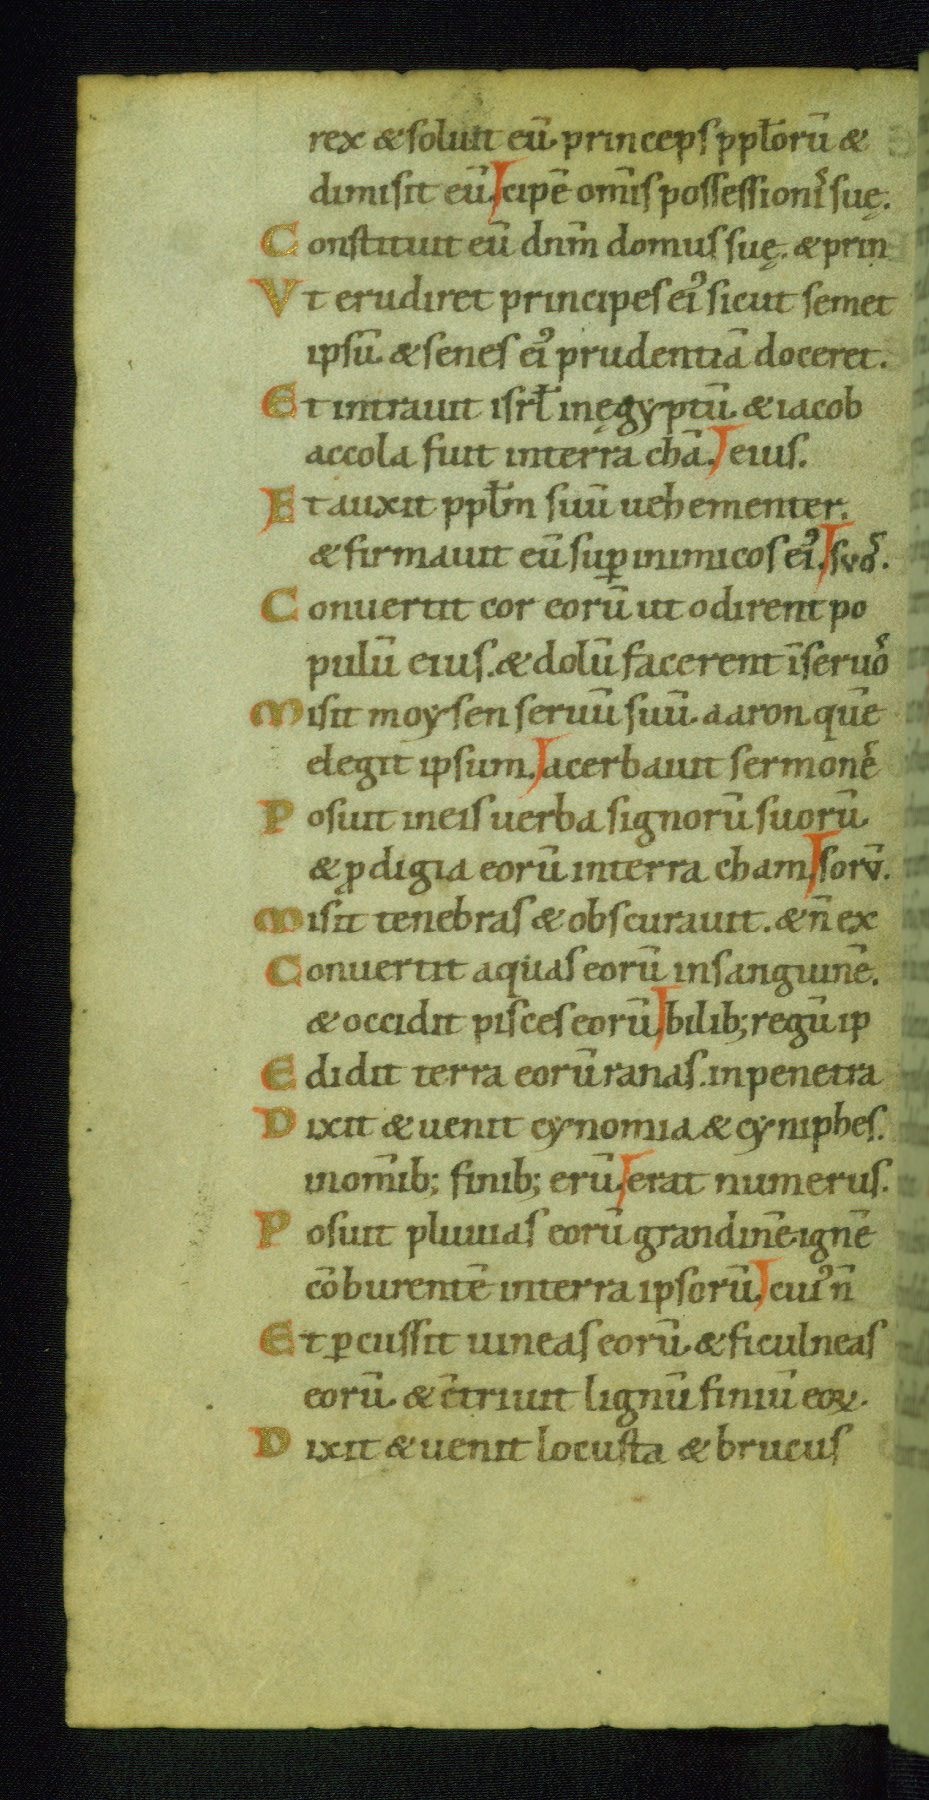 rex & soluit eū princeps ppl̄orū &
dimisit eū. cipē om̄is possessioni᷒ suę.
Constituit eū dnm̄ domus suę. & prin
Vt erudiret principes ei᷒ sicut semet
ipsū. & senes ei᷒ prudentiā doceret.
Et intrauit isrł in ęgyptū. & iacob
accola fuit in terra chā. eius.
Et auxit ppłm suū uehementer.
& firmauit eū suꝑ inimicos ei᷒. suo᷒.
Conuertit cor eorū ut odirent po
pulū eius. & dolū facerent ī seruo᷒
Misit moysen seruū suū. aaron quē
elegit ipsum. acerbauit sermone᷒
Posuit in eis uerba signorū suorū.
& ꝓdigia eorū in terra cham. sorū.
Misit tenebras & obscurauit. & n̄ ex
Conuertit aquas eorū in sanguinē.
& occidit pisces eorū. bilib; regū ip
Edidit terra eorū ranas. in penetra
Dixit & uenit cynomia & cyniphes.
in om̄ib; finib; erū. erat numerus.
Posuit pluuias eorū grandinē. ignē
cōburentē in terra ipsorū. cui᷒ n̄
Et ꝑcussit uineas eorū. & ficulneas
eorū. & c̄triuit lignū finiū eoꝝ.
Dixit & uenit locusta & brucus